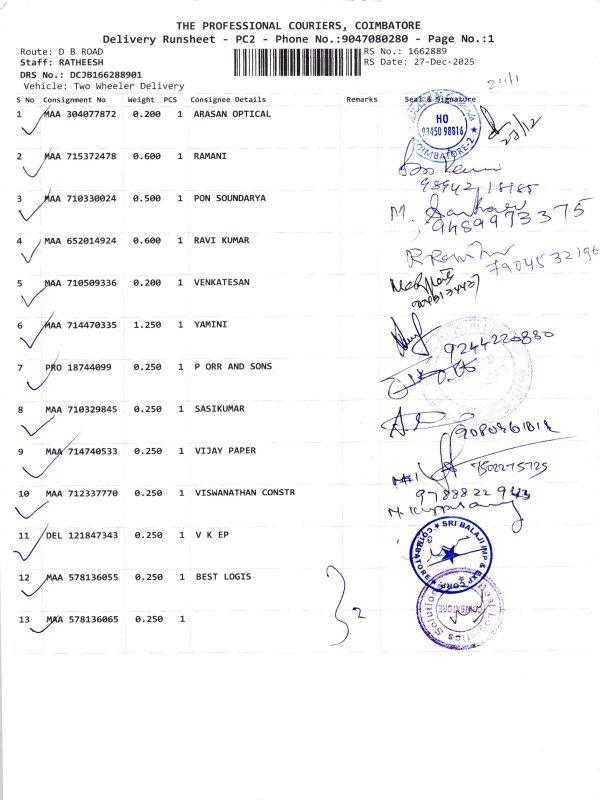 THE PROFESSIONAL COURIERS, COIMBATORE
Delivery Runsheet - PC2 - Phone No.:9047080280 - Page No.:1
Route: D B ROAD
RS No.: 1662889
Staff: RATHEESH
RS Date: 27-Dec-2025
DRS No.: DCJB166288901
Vehicle: Two Wheeler Delivery
S No Consignment No Weight PCS Consignee Details Remarks Seal & Signature
1 MAA 304077872 0.200 1 ARASAN OPTICAL
HO
93450 98816
COIMBATORE-2
2 MAA 715372478 0.600 1 RAMANI
3 MAA 710330024 0.500 1 PON SOUNDARYA
M.
9489973375
4 MAA 652014924 0.600 1 RAVI KUMAR
7904532196
5 MAA 710509336 0.200 1 VENKATESAN
6 MAA 714470335 1.250 1 YAMINI
9244220880
7 PRO 18744099 0.250 1 P ORR AND SONS
8 MAA 710329845 0.250 1 SASIKUMAR
9 MAA 714740533 0.250 1 VIJAY PAPER
7502275725
10 MAA 712337770 0.250 1 VISWANATHAN CONSTR
9788822943
11 DEL 121847343 0.250 1 V K EP
SRI BALAJI IMP & EXP CORP
COIMBATORE
12 MAA 578136055 0.250 1 BEST LOGIS
2
13 MAA 578136065 0.250 1